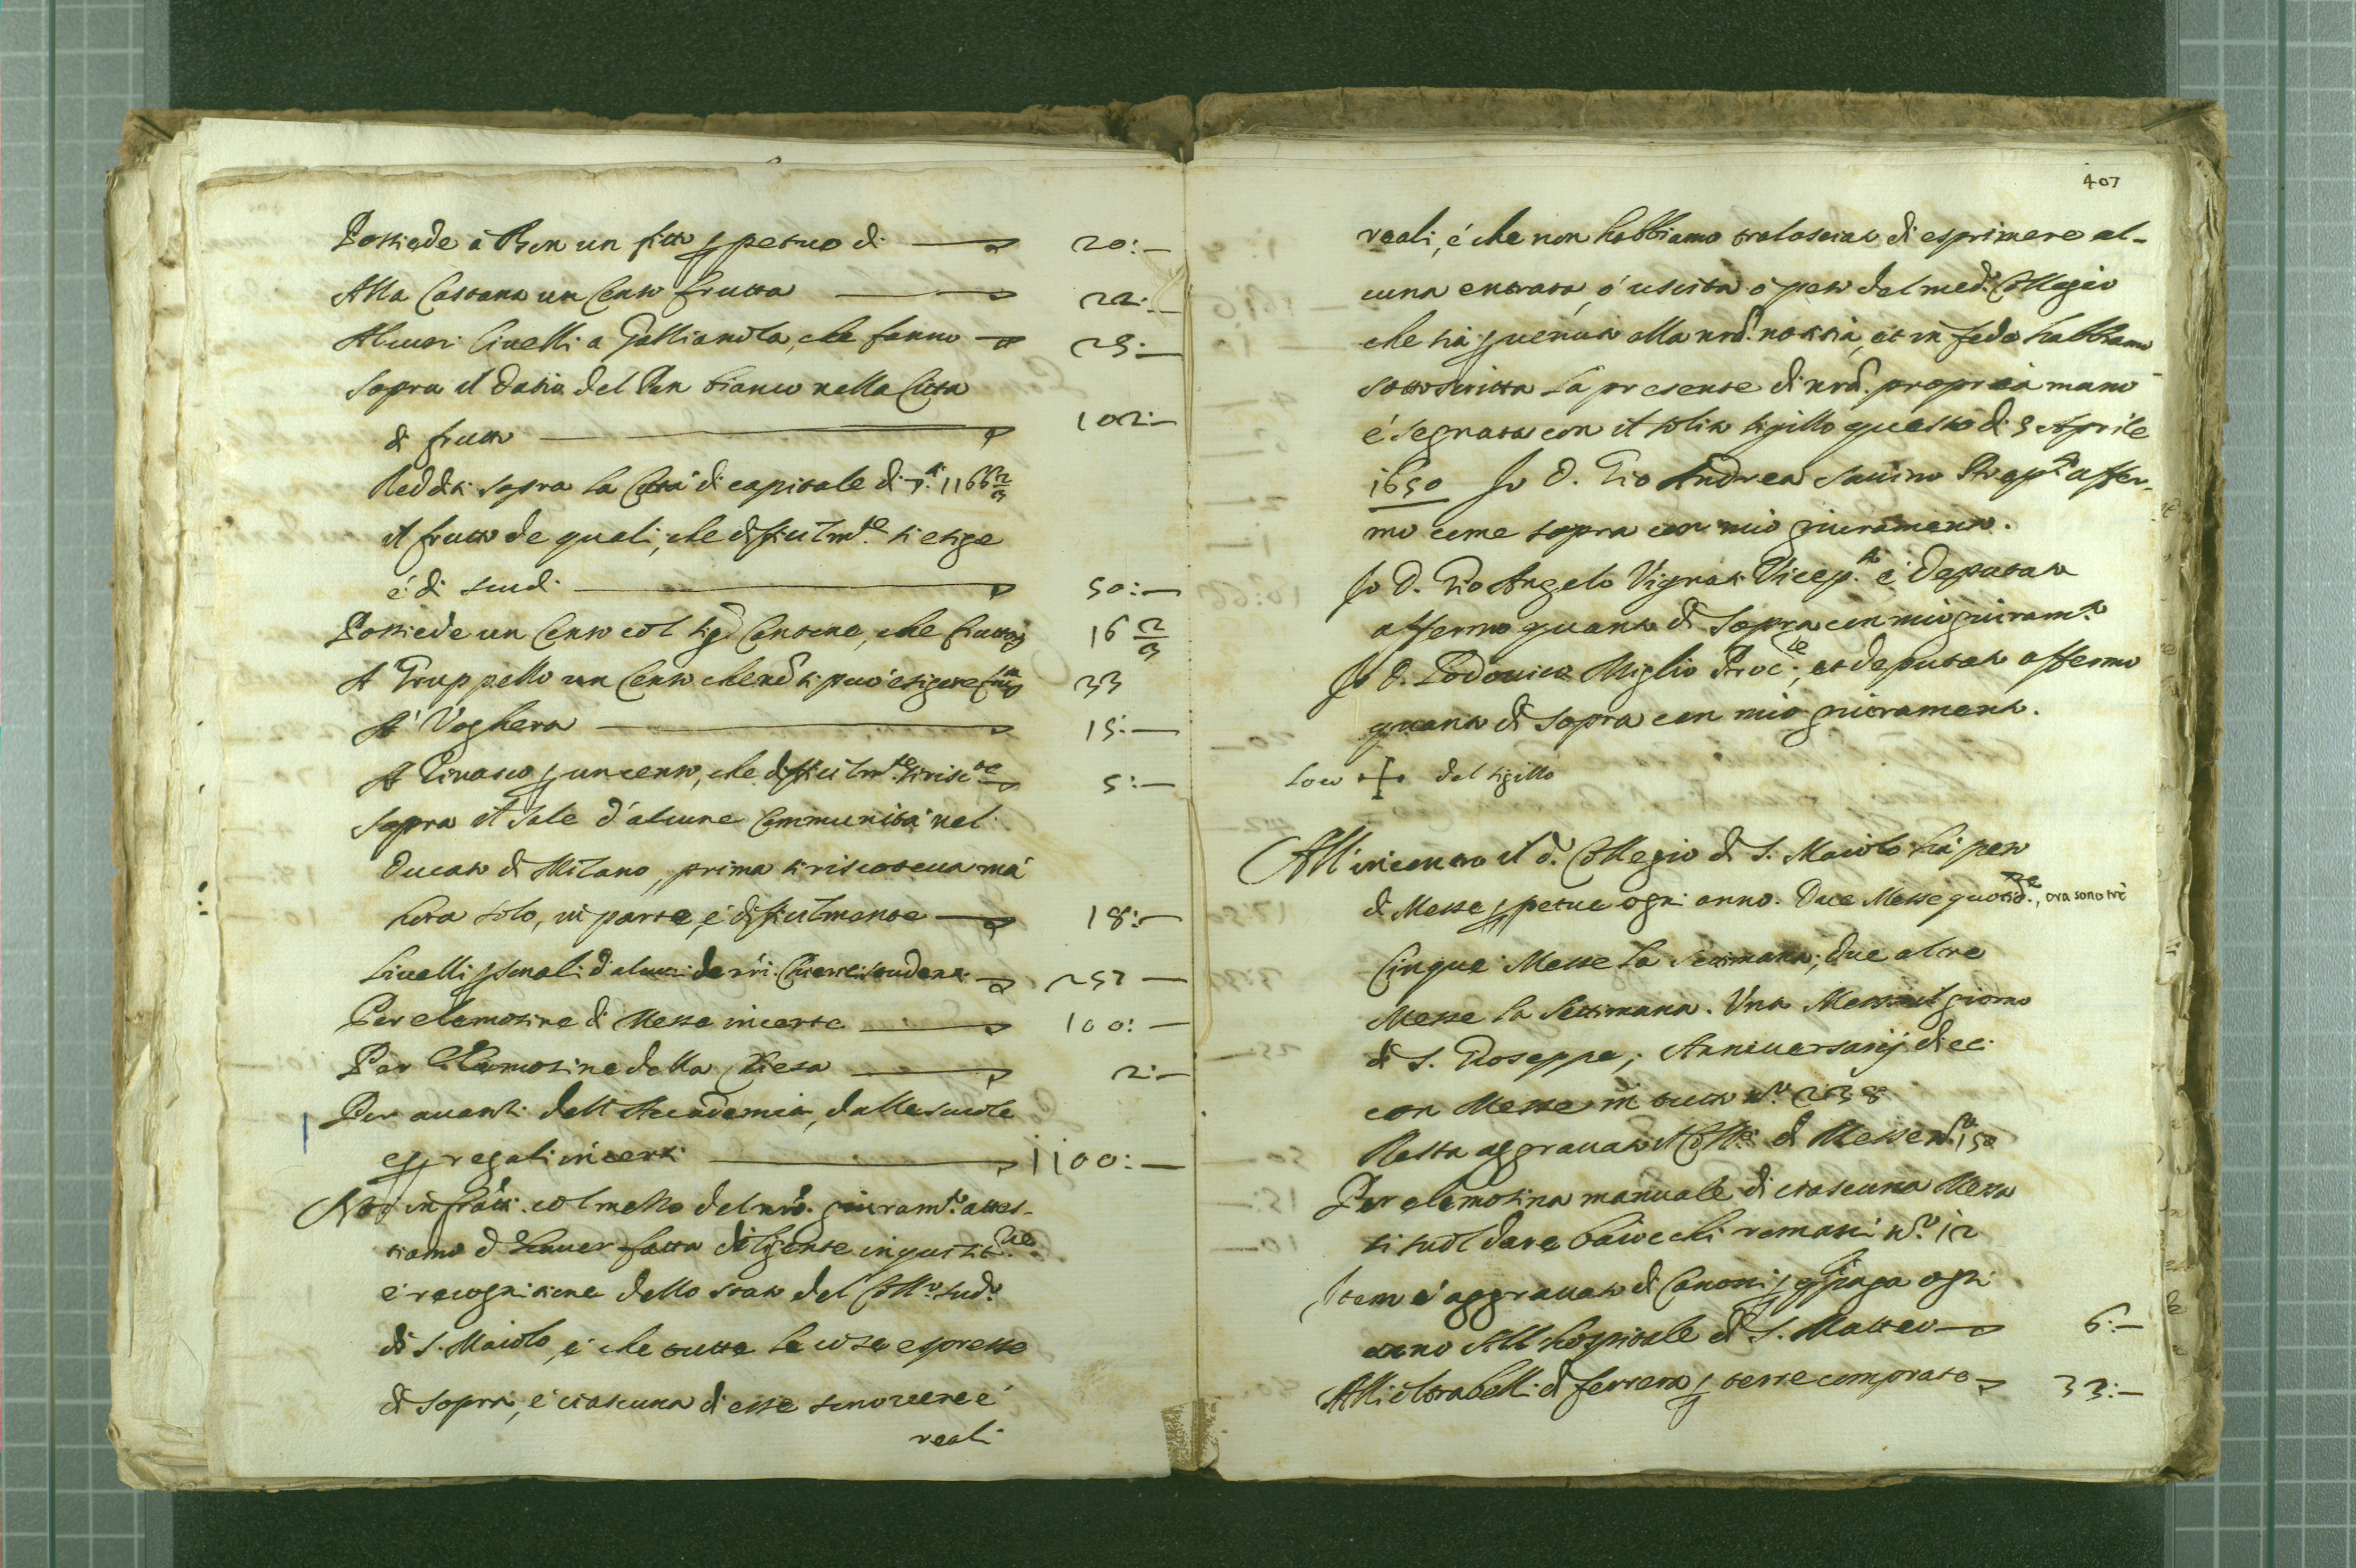 Possiede à Ren un fitto ꝑpetuo di 20:—
Alla Cattana un Censo frutta 22:—
Alcuni livelli a Gallianola, che fanno 23:—
Sopra il datio del Pan bianco nella Città
di frutto 102:—
Redditi sopra la Città di capitale di 1166 2/3
il frutto de quali, che dificilm.te si esige
é di scudi 50:—
Possiede un Censo col sig.r Cantone, che frutta 16 2/3
A' Gruppello un Censo che nō si può esigere 33
A' Voghera 15:—
A Binasco ꝑ un censo, che difficilm.te si risc.e 5:—
Sopra il Sale d'alcune Communità nel
Ducato di Milano, prima si riscoteua mà
hora solo, in parte, é dificilmente 18:—
Liuelli ꝑsonali d'alcuni de nri. 252 —
Per elemosine di Messe incerte 100:—
Per Elemosine della Chiesa 2:—
Per auanti dell'Accademia, dalle scuole
e ꝑ regali incerti 1100:—
Noi infratti. col mezzo del nrō. giuram.to attes-
tiamo d'hauer fatta diligente inquisit.ne
é recognitione dello stato del Coll.o sud.o
di S. Maiolo, é che tutte le cose espresse
di sopra, é ciascuna di esse sono uere é
reali
407
reali, é che non habbiamo tralasciato di esprimere al-
cuna entrata, ó uscita ó peso del med.o Collegio
che sia ꝑuenuta alla nrā. notitia, et in fede habbiamo
sottoscritta la presente di nrā. propria mano
é segnata con il solito sigillo questo dì 3 Aprile
1650 Io D. Gio Andrea Sauino Prep.to affer-
mo come sopra con mio giuramento.
Io D. Gio Angelo Vignati Vicep.to é Deputato
affermo quanto di sopra con mio giuram.to
Io D. Lodouico Miglio Proc.re, et deputato affermo
quanto di sopra con mio giuramento.
Loco ✢ del sigillo
All'incontro il d.o Collegio di S. Maiolo hà peso
di Messe ꝑpetue ogni anno. Due Messe quotid.ne, ora sono trè
Cinque Messe la Settimana; due altre
Messe la Settimana. Vna Messa il giorno
di S. Gioseppe; Anniuersarij dieci
con Messe in tutto N.o 238
Resta aggrauato il Coll.o di Messe N.o 150
Per elemosina manuale di ciascuna Messa
si suol dare baiocchi romani N.o 12
Item é aggrauato di Canoni, ꝑ q̄ paga ogni
anno All'hospitale di S. Matteo 6:—
Alli Strabelli di ferrera ꝑ terre comprate 33:—